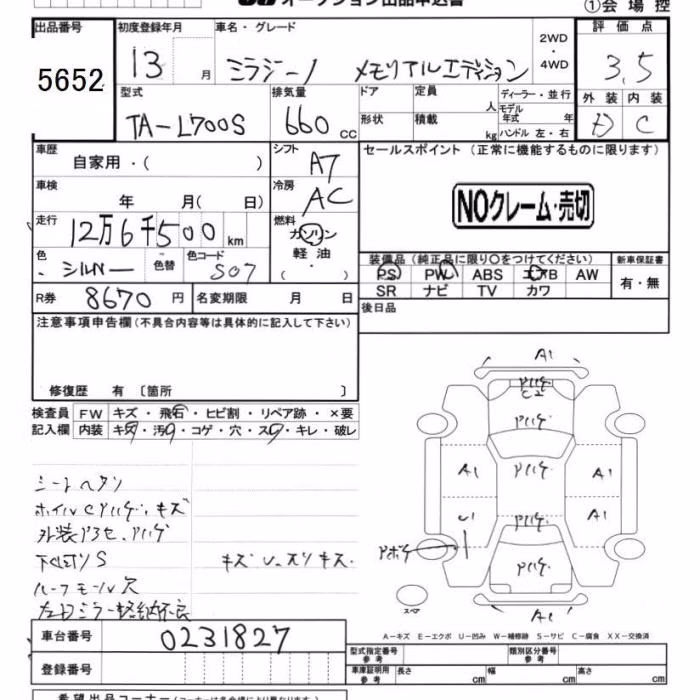 オークション出品申込書
①会場控
出品番号 初度登録年月 車名・グレード 評価点
5652 13 月 ミラジーノ メモリアルエディション 2WD・4WD 3.5
型式 排気量 ドア 定員 人 ディーラー・並行 外装 内装
TA-L700S 660 cc 形状 積載 kg モデル年式 年 D C
ハンドル 左・右
車歴 自家用・( ) シフト A7 セールスポイント (正常に機能するものに限ります)
車検 年 月( 日) 冷房 AC NOクレーム・売切
走行 12万6千500 km 燃料 ガソリン
軽油・( )
色 シルバー 色替 色コード S07
装備品 (純正品に限り○をつけてください) 新車保証書
PS PW ABS エアB AW 有・無
SR ナビ TV カワ
R券 8670 円 名変期限 月 日 後日品
注意事項申告欄(不具合内容等は具体的に記入して下さい)
修復歴 有 〔箇所 〕
検査員 FW キズ・飛石・ヒビ割・リペア跡・×要
記入欄 内装 キズ・汚れ・コゲ・穴・スレ・キレ・破レ
シートヘタリ
ホイルCアハゲ、キズ
外装アセ、アハゲ
下回りS キズ U、スリキズ
ルーフモール欠
左ドアミラー格納不良
A1
アハゲ
C2
アハゲ
A1 アハゲ A1
U1 アハゲ A1
アハゲ
A1
スペア
A-キズ E-エクボ U-凹み W-補修跡 S-サビ C-腐食 XX-交換済
車台番号 0231827
登録番号
型式指定番号 参考 類別区分番号 参考
車庫証明用 参考 長さ cm 幅 cm 高さ cm
希望出品コーナー